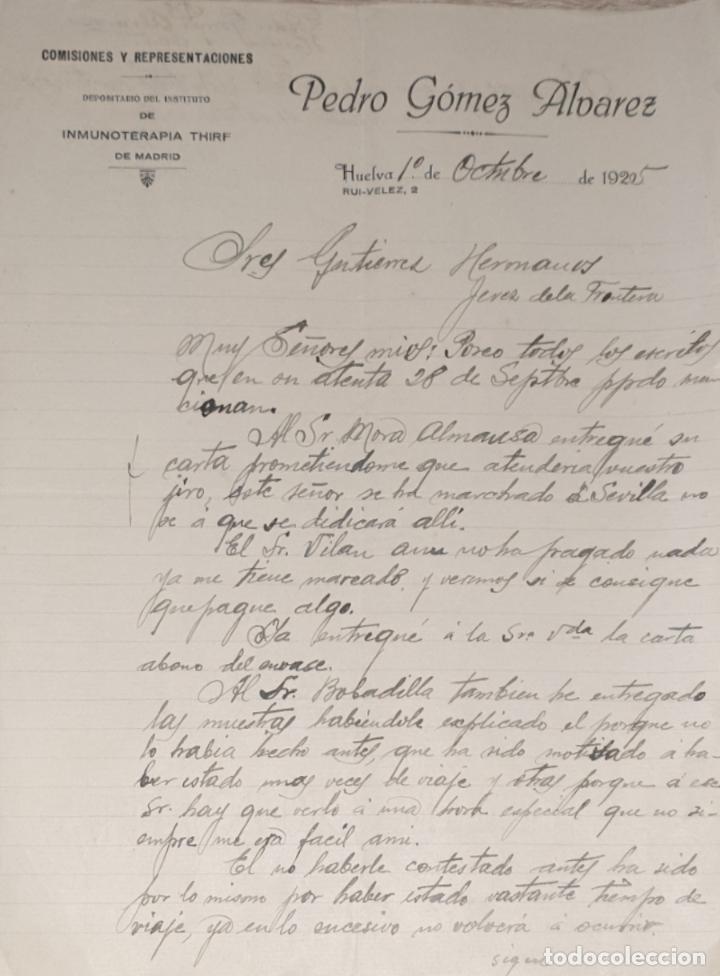 COMISIONES Y REPRESENTACIONES
DEPOSITARIO DEL INSTITUTO
DE
INMUNOTERAPIA THIRF
DE MADRID
Pedro Gómez Alvarez
Huelva 1º de Octubre de 1925
RUI-VELEZ, 2
Sres Gutierres Hermanos
Jerez dela Frontera
Muy Señores mios: Poseo todos los escritos
que en su atenta 28 de Septbre ppdo men-
cionan.
Al Sr Mora Almansa entregué su
carta prometiendome que atenderia vuestro
jiro, este señor se ha marchado á Sevilla no
se á que se dedicará allí.
El Sr. Vilan aun no ha pagado nada
ya me tiene mareado y veremos si se consigue
que pague algo.
Ya entregué á la Sra Vda la carta
abono del envase.
Al Sr. Bobadilla tambien he entregado
las muestras habiéndole explicado el porque no
lo habia hecho antes, que ha sido motivado á ha-
ber estado unas veces de viaje y otras porque á ese
Sr. hay que verlo á una hora especial que no si-
empre me era facil ami.
El no haberle contestado antes ha sido
por lo mismo por haber estado vastante tiempo de
viaje, ya en lo sucesivo no volverá á ocurrir.
todocoleccion